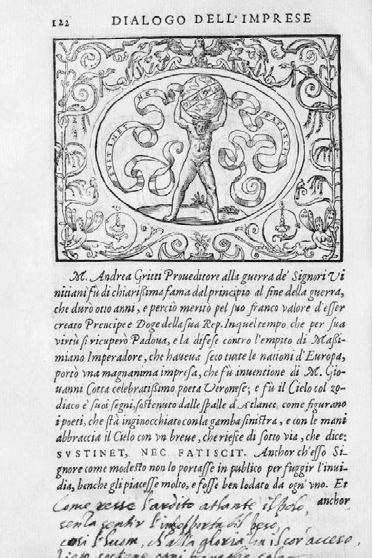 122 DIALOGO DELL'IMPRESE
SVSTINET NEC FATISCIT
M. Andrea Gritti Proueditore alla guerra de' Signori Vi
nitiani fù di chiarißima fama dal principio al fine della guerra,
che durò otto anni, e perciò meritò pel suo franco valore d'esser
creato Prencipe e Doge della sua Rep. In quel tempo che per sua
virtù si ricuperò Padoua, e la difese contro l'empito di Maßi-
miano Imperadore, che haueua seco tutte le nationi d'Europa,
portò vna magnanima impresa, che fù inuentione di M. Gio-
uanni Cotta celebratißimo poeta Veronese; e fù il Cielo col zo-
diaco e suoi segni, sostenuto dalle spalle d'Atlante, come figurano
i poeti, che stà inginocchiato con la gamba sinistra, e con le mani
abbraccia il Cielo con vn breue, che riesce di sotto via, che dice:
SVSTINET, NEC FATISCIT. Anchor ch'esso Si-
gnore come modesto non lo portasse in publico per fuggir l'inui-
dia, benche gli piacesse molto, e fosse ben lodato da ogni vno. Et
anchor
Come resse l'ardito atlante il polo,
senza sentir
così